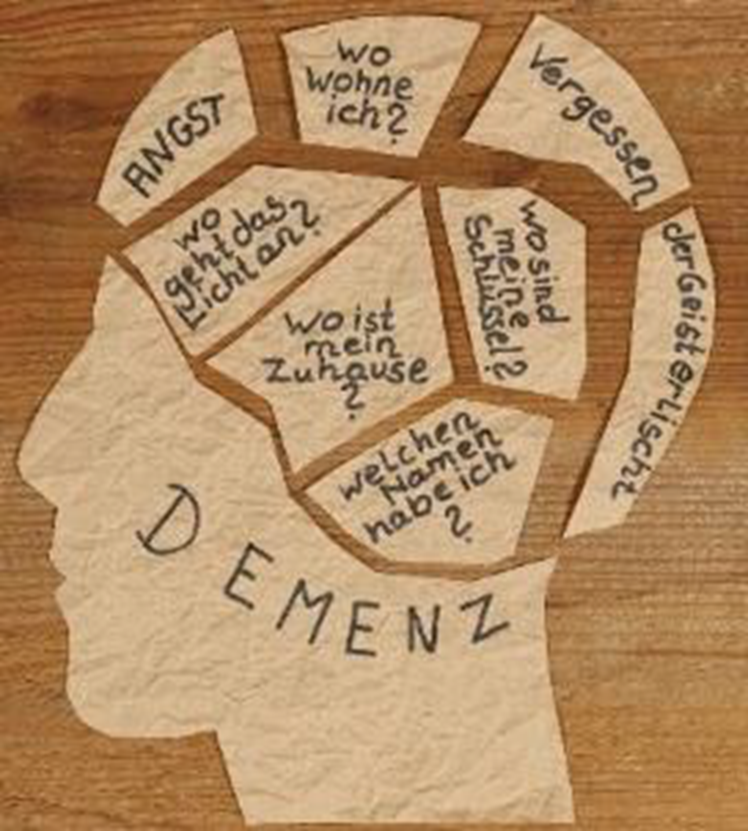 ANGST
wo
wohne
ich?
Vergessen
wo
geht das
Licht an?
wo sind
meine
Schlüssel?
der Geist erlischt
wo ist
mein
Zuhause
?
welchen
Namen
habe ich
?
DEMENZ